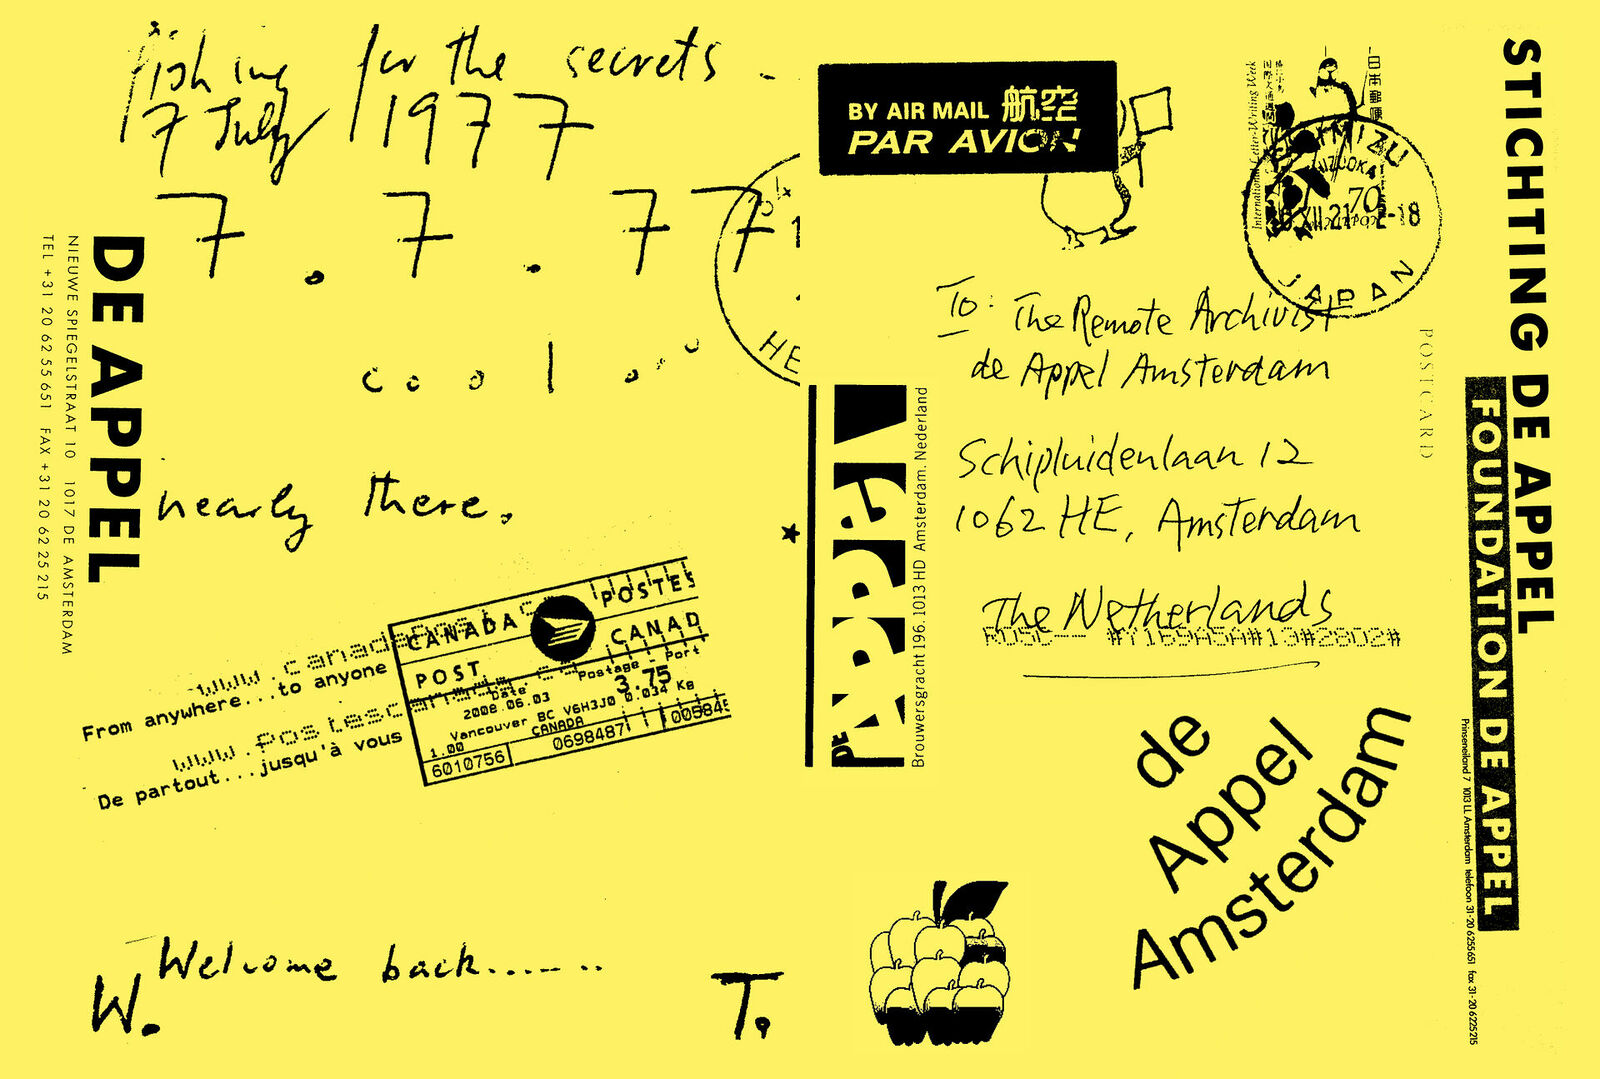 fishing for the secrets.
7 July 1977
7 . 7 . 77
cool...
nearly there.
DE APPEL
NIEUWE SPIEGELSTRAAT 10 1017 DE AMSTERDAM
TEL +31 20 62 55 651 FAX +31 20 62 25 215
HE
CANADA POSTES
POST CANAD
www.canadapos
From anywhere...to anyone
www.postescan
De partout...jusqu'à vous
Date Postage - Port
2008.06.03 3.75
Vancouver BC V6H3J0 0.034 Kg
1.00 CANADA
6010756 0698487 00584
Welcome back.......
W. T.
BY AIR MAIL 航空
PAR AVION
International Letter-Writing Week
日本郵便
70
NIPPON
SHIMIZU
SHIZUOKA
JAPAN
To: The Remote Archivist
de Appel Amsterdam
Schipluidenlaan 12
1062 HE, Amsterdam
The Netherlands
POSTCARD
DE APPEL
Brouwersgracht 196. 1013 HD Amsterdam. Nederland
de
Appel
Amsterdam
STICHTING DE APPEL
FOUNDATION DE APPEL
Prinseneiland 7 1013 LL Amsterdam telefoon 31-20 6255651 fax 31-20 6225215